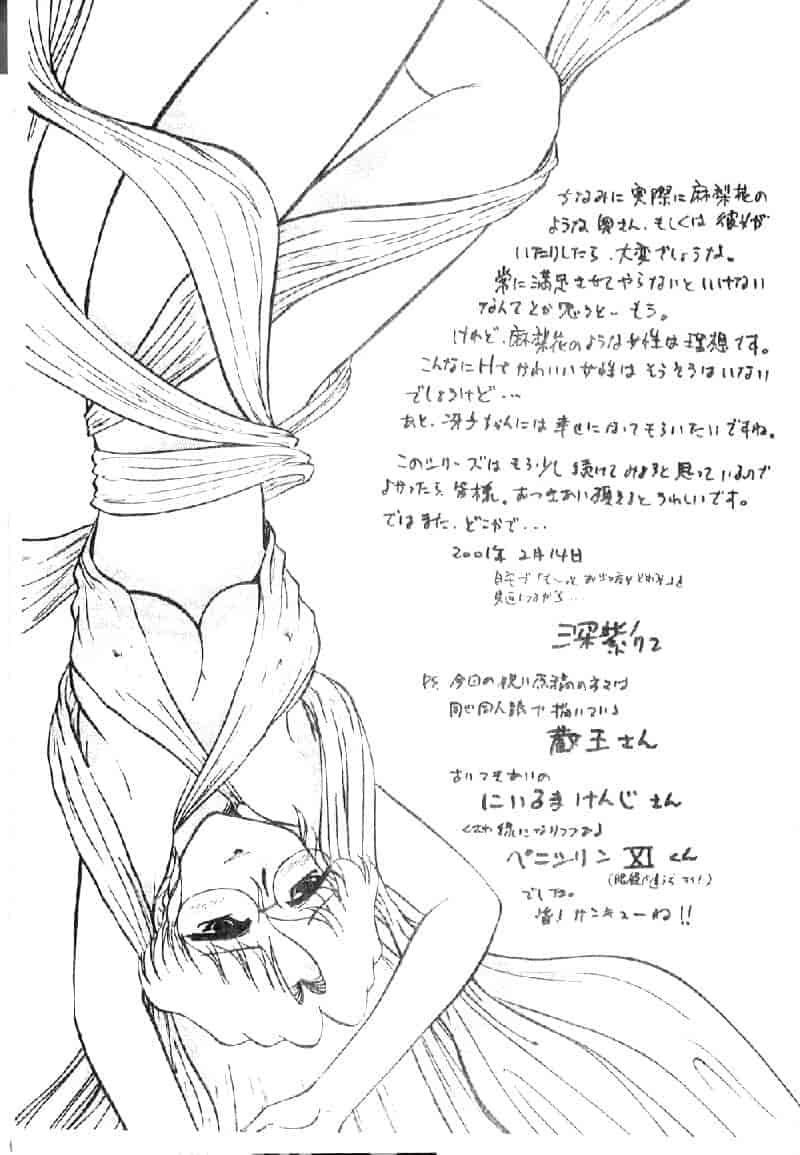 ちなみに実際に麻梨花の
ような奥さん、もしくは彼女が
いたりしたら、大変でしょうな。
常に満足させてやらないといけない
なんてとか思うと…もう。
けれど、麻梨花のような女性は理想です。
こんなにHでかわいい女性はもうそうはいない
でしょうけど…
あと、冴子ちゃんには幸せになってもらいたいですね。
このシリーズはもう少し続けてみようと思っているので
よかったら、皆様。おつきあい頂けるとうれしいです。
ではまた、どこかで…
2001年2月14日
自宅で
深紫
PS. 今回の祝い原稿の
同じ同人誌で描いている
蔵王さん
にいるまけんじさん
くされ縁になりつつある
ペニシリンXIくん
でした。
皆!サンキューね!!